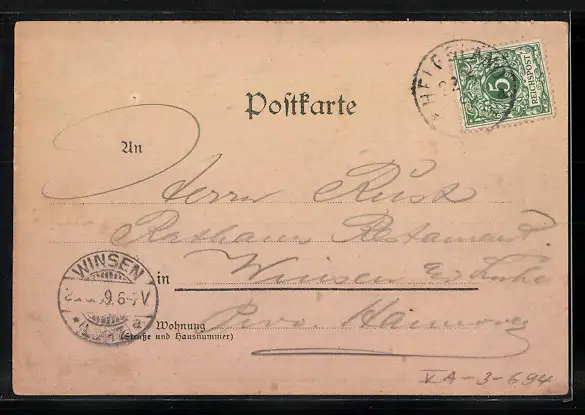 HELGOLAND
5
REICHSPOST
Postkarte
An
Herrn Rust
Rathaus Restaurant
WINSEN
9. 6-7 V
a
in Winsen
Prov. Hannover
Wohnung
(Straße und Hausnummer)
V A - 3 - 694